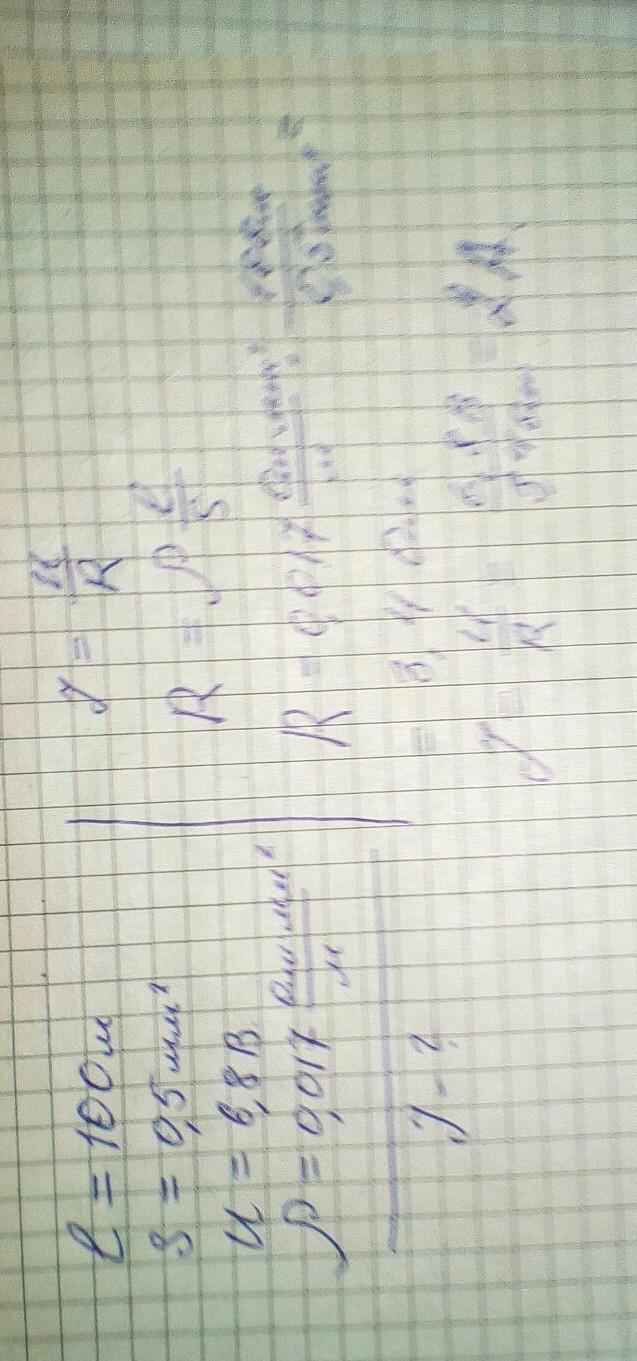 l = 100 м
S = 0,5 мм²
U = 6,8 В
ρ = 0,017 Ом·мм²/м
I - ?
I = U/R
R = ρ l/S
R = 0,017 Ом·мм²/м · 100м/0,5мм² =
= 3,4 Ом
I = U/R = 6,8 В/3,4 Ом = 2 А.